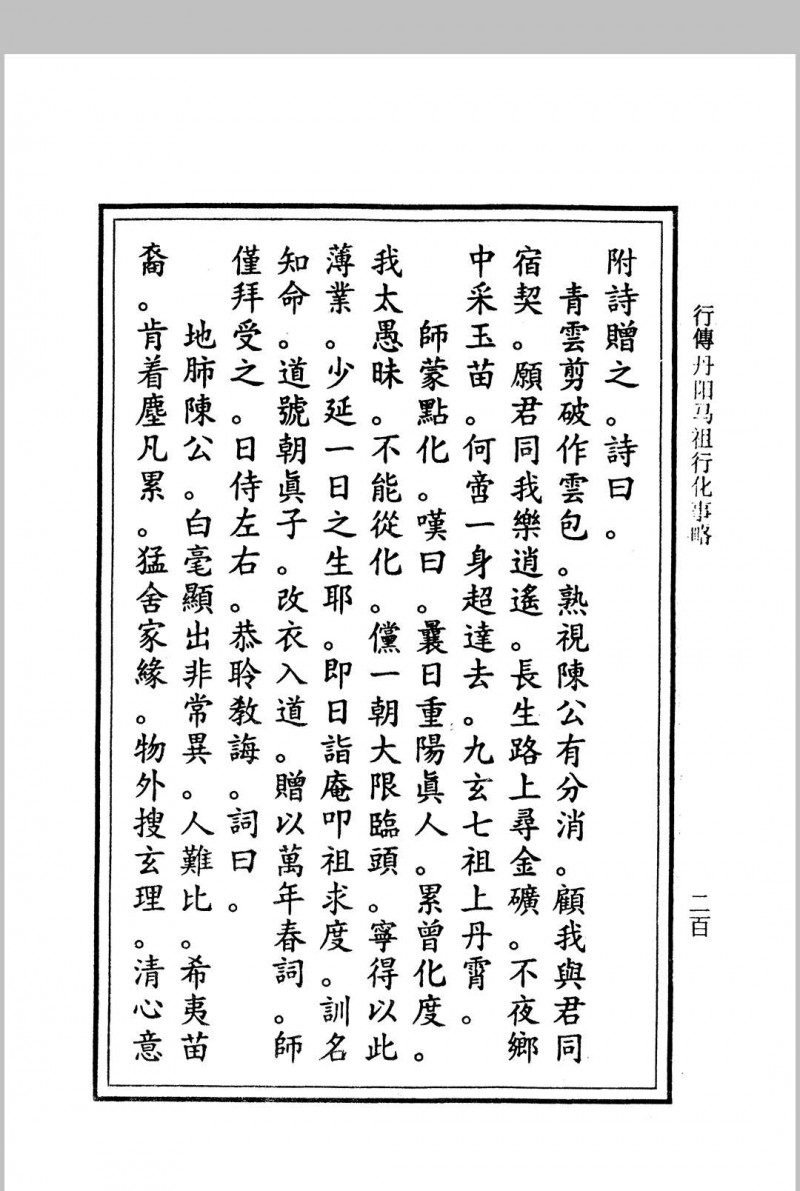 行傳丹阳马祖行化事略
二百
附詩贈之。詩曰。
青雲剪破作雲包。熟視陳公有分消。顧我與君同
宿契。願君同我樂逍遙。長生路上尋金礦。不夜鄉
中采玉苗。何啻一身超達去。九玄七祖上丹霄。
師蒙點化。嘆曰。曩日重陽眞人。累曾化度。
我太愚昧。不能從化。儻一朝大限臨頭。寧得以此
薄業。少延一日之生耶。即日詣庵叩祖求度。訓名
知命。道號朝眞子。改衣入道。贈以萬年春詞。師
僅拜受之。日侍左右。恭聆敎誨。詞曰。
地肺陳公。白毫顯出非常異。人難比。希夷苗
裔。肯着塵凡累。猛舍家緣。物外搜玄理。清心意